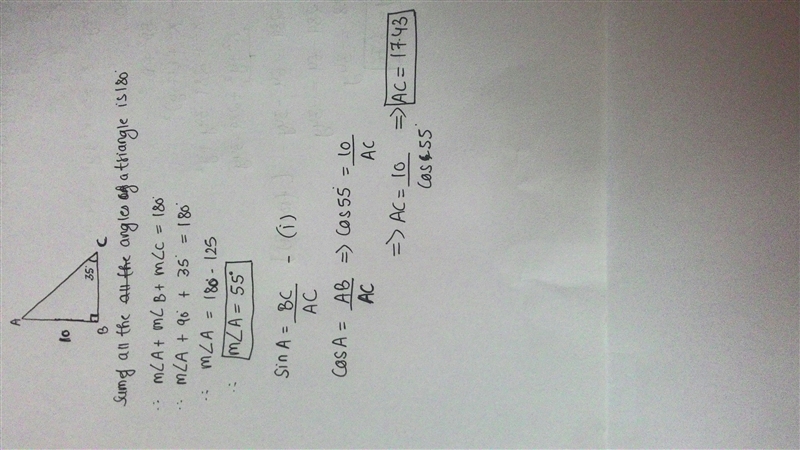 A
10
35°
B
C
Sum of all the angles of a triangle is 180°
∴ m∠A + m∠B + m∠C = 180°
∴ m∠A + 90° + 35° = 180°
∴ m∠A = 180 - 125
∴ m∠A = 55°
Sin A = BC/AC - (i)
Cos A = AB/AC => Cos 55° = 10/AC
=> AC = 10/Cos 55° => AC = 17.43